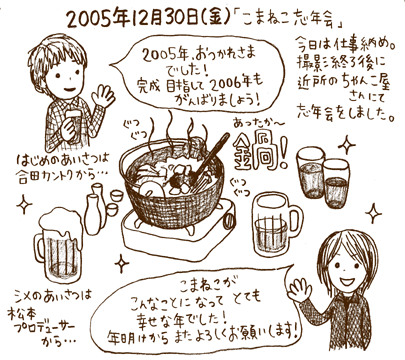 2005年12月30日(金)「こまねこ忘年会」
今日は仕事納め。
撮影終了後に
近所のちゃんこ屋
さんにて
忘年会をしました。
2005年、おつかれさま
でした!
完成目指して2006年も
がんばりましょう!
はじめのあいさつは
合田カントクから…
ぐつ
ぐつ
あったか〜
鍋!
ぐつ
ぐつ
シメのあいさつは
松本
プロデューサー
から…
こまねこが
こんなことになって とても
幸せな年でした!
年明けから またよろしくお願いします!